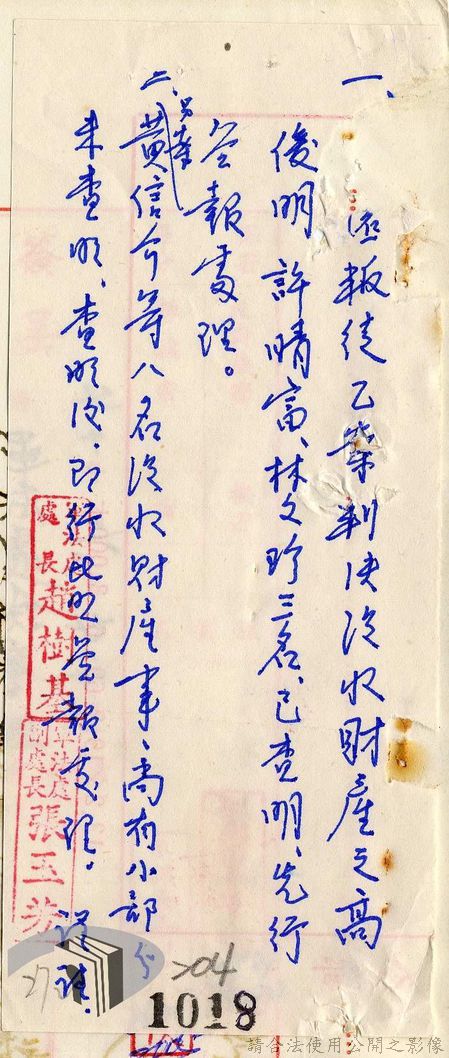 一、
逃叛徒乙案判決沒收財產之高
俊明、許晴富、林文珍三名、已查明、先行
簽報處理。
二、另案
黃信介等八名沒收財產事、尚有小部分
未查明、查明後、即行比照簽報處理。謹陳、
處長趙樹基
軍法處
副處長張玉芳
204
1018
請合法使用公開之影像